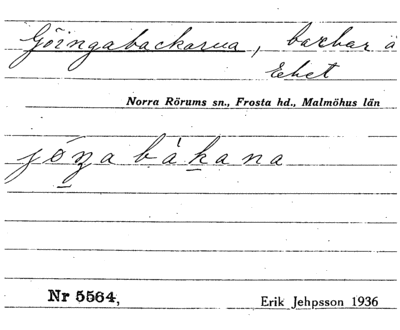 Göingabackarna, backar å
Eket
Norra Rörums sn, Frosta hd., Malmöhus län
jöŋabákana
Nr 5564,
Erik Jehpsson 1936